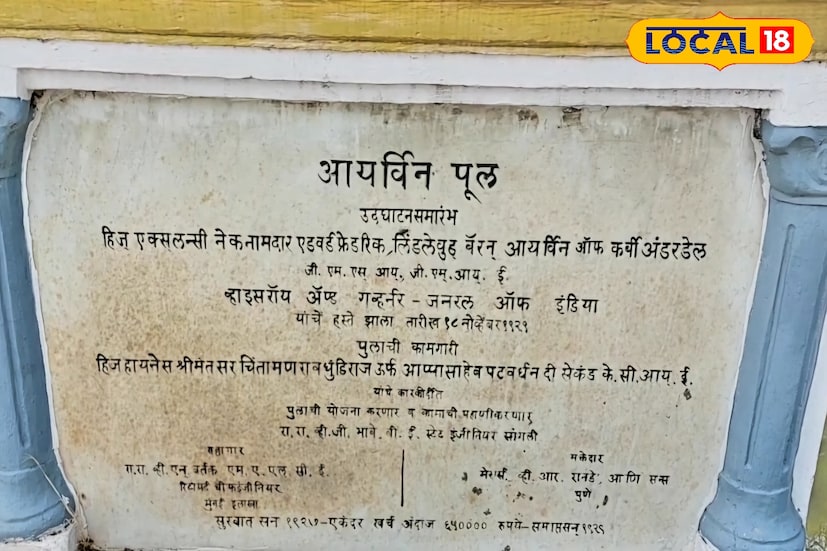 LOCAL 18
आयर्विन पूल
उदघाटनसमारंभ
हिज एक्सलन्सी नेकनामदार एडवर्ड फ्रेडरिक, लिंडलेवुड् बॅरन् आयर्विन ऑफ कर्बी अंडरडेल
जी. एम. एस. आय., जी. एम. आय. ई.
व्हाइसरॉय ॲण्ड गव्हर्नर - जनरल ऑफ इंडिया
यांचे हस्ते झाला तारीख १८ नोव्हेंबर १९२९
पुलाची कामगारी
हिज हायनेस श्रीमंत सर चिंतामणराव धुंडिराज ऊर्फ आप्पासाहेब पटवर्धन दी सेकंड के. सी. आय. ई.
यांचे कारकीर्दीत
पुलाची योजना करणार व कामाची पहाणी करणार
रा. रा. व्ही. जी. भावे, बी. ई. स्टेट इंजीनियर सांगली
सल्लागार
रा. रा. व्ही. एन्. वर्तक एम. ए. एल. सी. ई.
रिटायर्ड चीफ इंजीनियर
मुंबई इलाखा
मक्तेदार
मेसर्स. व्ही. आर. रानडे, आणि सन्स
पुणे
सुरवात सन १९२७ - एकंदर खर्च अंदाज ६५०००० रुपये - समाप्त सन् १९२९